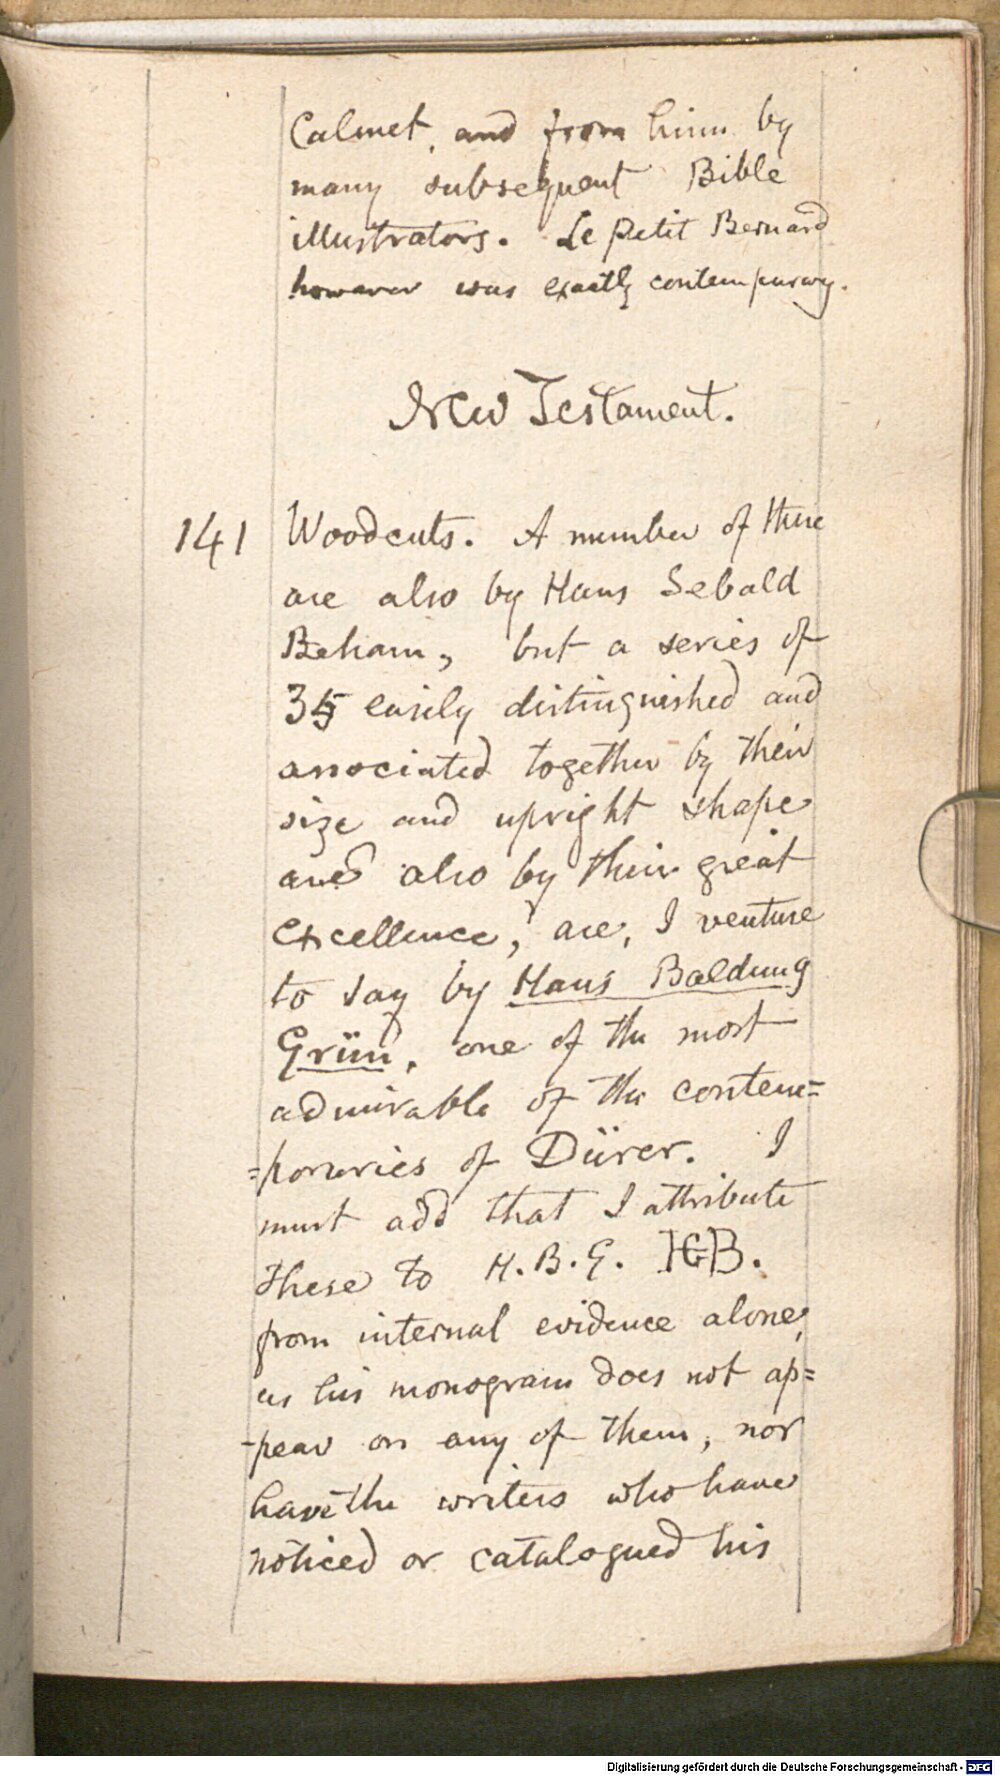 Calmet, and from him by
many subsequent Bible
illustrators. Le Petit Bernard
however was exactly contemporary.
New Testament.
141 Woodcuts. A number of these
are also by Hans Sebald
Beham, but a series of
35 easily distinguished and
associated together by their
size and upright shape
and also by their great
excellence, are, I venture
to say by Hans Baldung
Grün, one of the most
admirable of the contem=
=poraries of Dürer. I
must add that I attribute
these to H.B.G. HGB.
from internal evidence alone,
as his monogram does not ap=
-pear on any of them, nor
have the writers who have
noticed or catalogued his
Digitalisierung gefördert durch die Deutsche Forschungsgemeinschaft - DFG